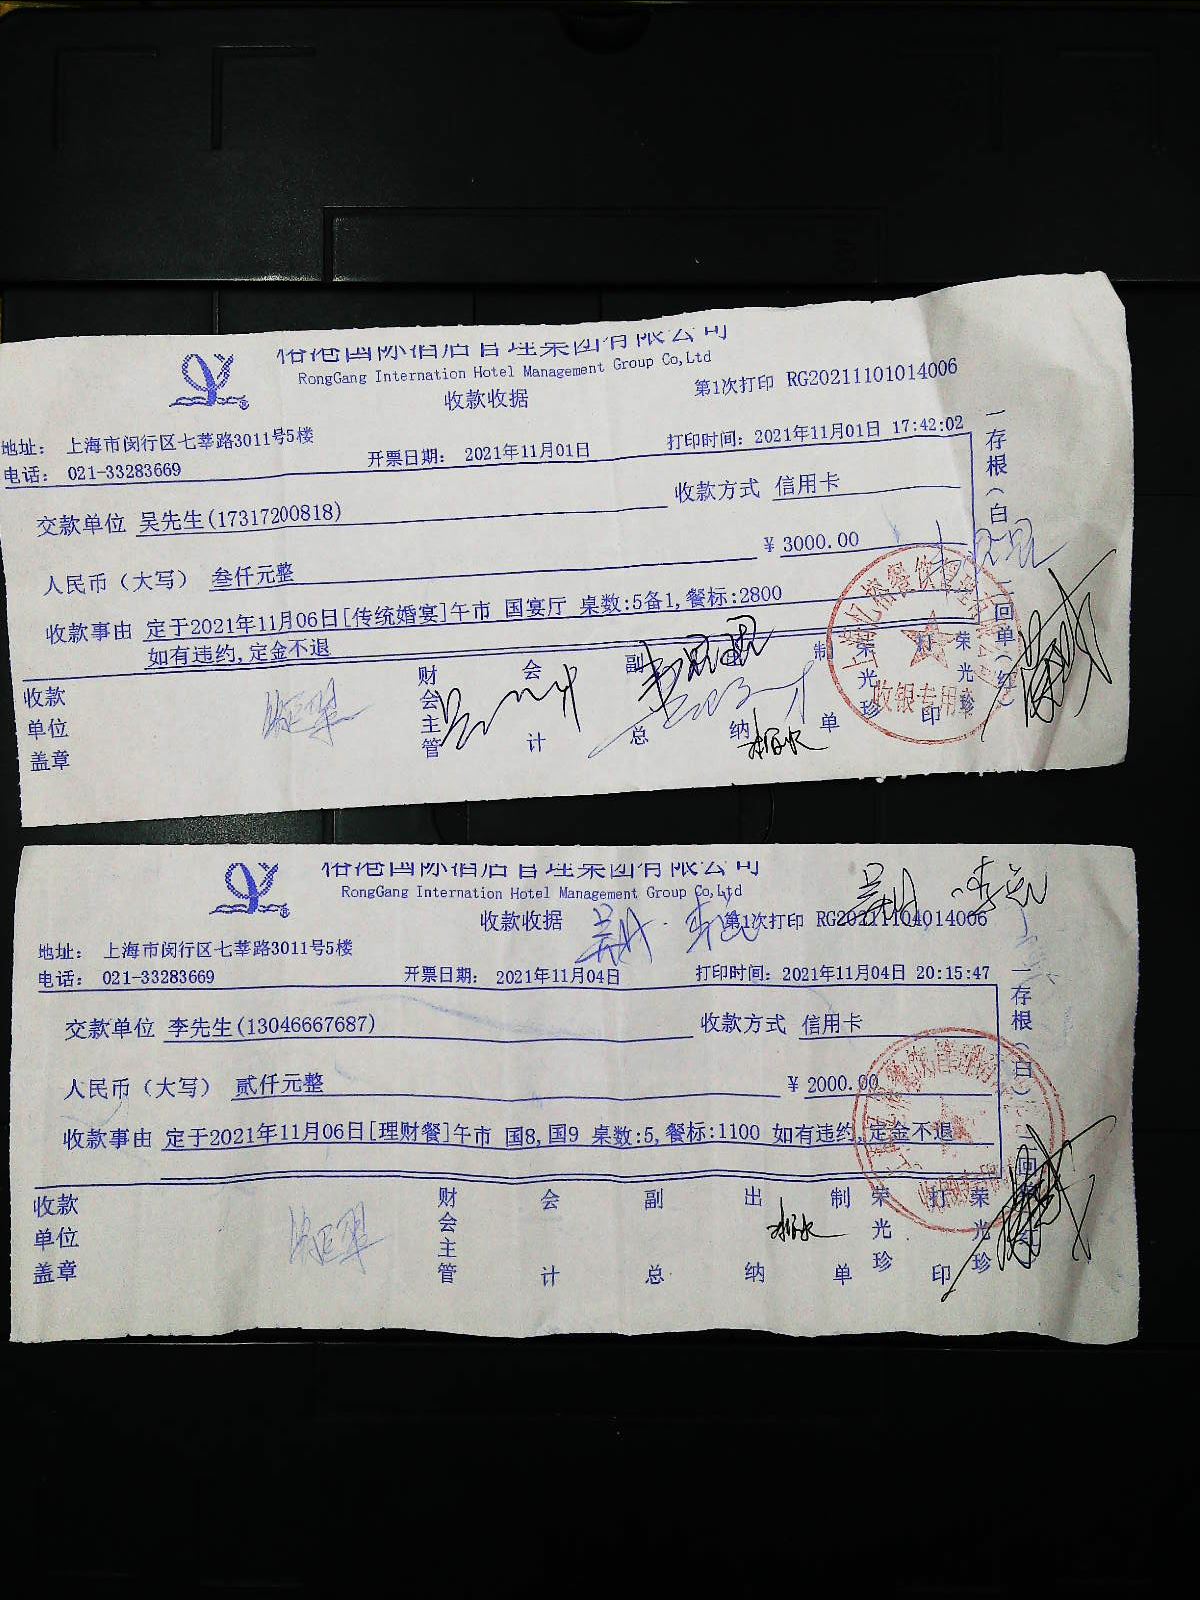 榕港国际酒店管理集团有限公司
RongGang Internation Hotel Management Group Co,Ltd
收款收据
第1次打印 RG20211101014006
地址: 上海市闵行区七莘路3011号5楼
电话: 021-33283669
开票日期: 2021年11月01日
打印时间: 2021年11月01日 17:42:02
交款单位 吴先生(17317200818)
收款方式 信用卡
人民币(大写) 叁仟元整
¥ 3000.00
收款事由 定于2021年11月06日[传统婚宴]午市 国宴厅 桌数:5备1,餐标:2800
如有违约,定金不退
收款单位盖章
财会主管
会计
副总
纳
制单
荣光珍
打印
荣光珍
一存根(白)
二回单(红)
收银专用章
榕港国际酒店管理集团有限公司
RongGang Internation Hotel Management Group Co,Ltd
收款收据
第1次打印 RG20211104014006
地址: 上海市闵行区七莘路3011号5楼
电话: 021-33283669
开票日期: 2021年11月04日
打印时间: 2021年11月04日 20:15:47
交款单位 李先生(13046667687)
收款方式 信用卡
人民币(大写) 贰仟元整
¥ 2000.00
收款事由 定于2021年11月06日[理财餐]午市 国8,国9 桌数:5,餐标:1100 如有违约,定金不退
收款单位盖章
财会主管
会计
副总
出纳
制单
荣光珍
打印
荣光珍
一存根(白)
二回